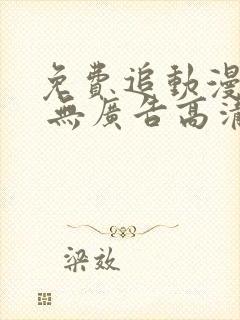 免費追動漫
無廣告高清
梁效